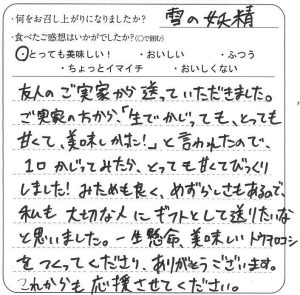 ・何をお召し上がりになりましたか? 雪の妖精
・食べたご感想はいかがでしたか?(○で囲む)
・とっても美味しい! ・おいしい ・ふつう
・ちょっとイマイチ ・おいしくない
友人のご実家から送っていただきました。
ご実家の方から、「生でかじっても、とっても
甘くて、美味しかた!」と言われたので、
1口かじってみたら、とっても甘くてびっくり
しました!みためも良く、めずらしさもあるので、
私も大切な人にギフトとして送りたいな
と思いました。一生懸命、美味しいトウモロコシ
をつくってくださり、ありがとうございます。
これからも応援させてください。